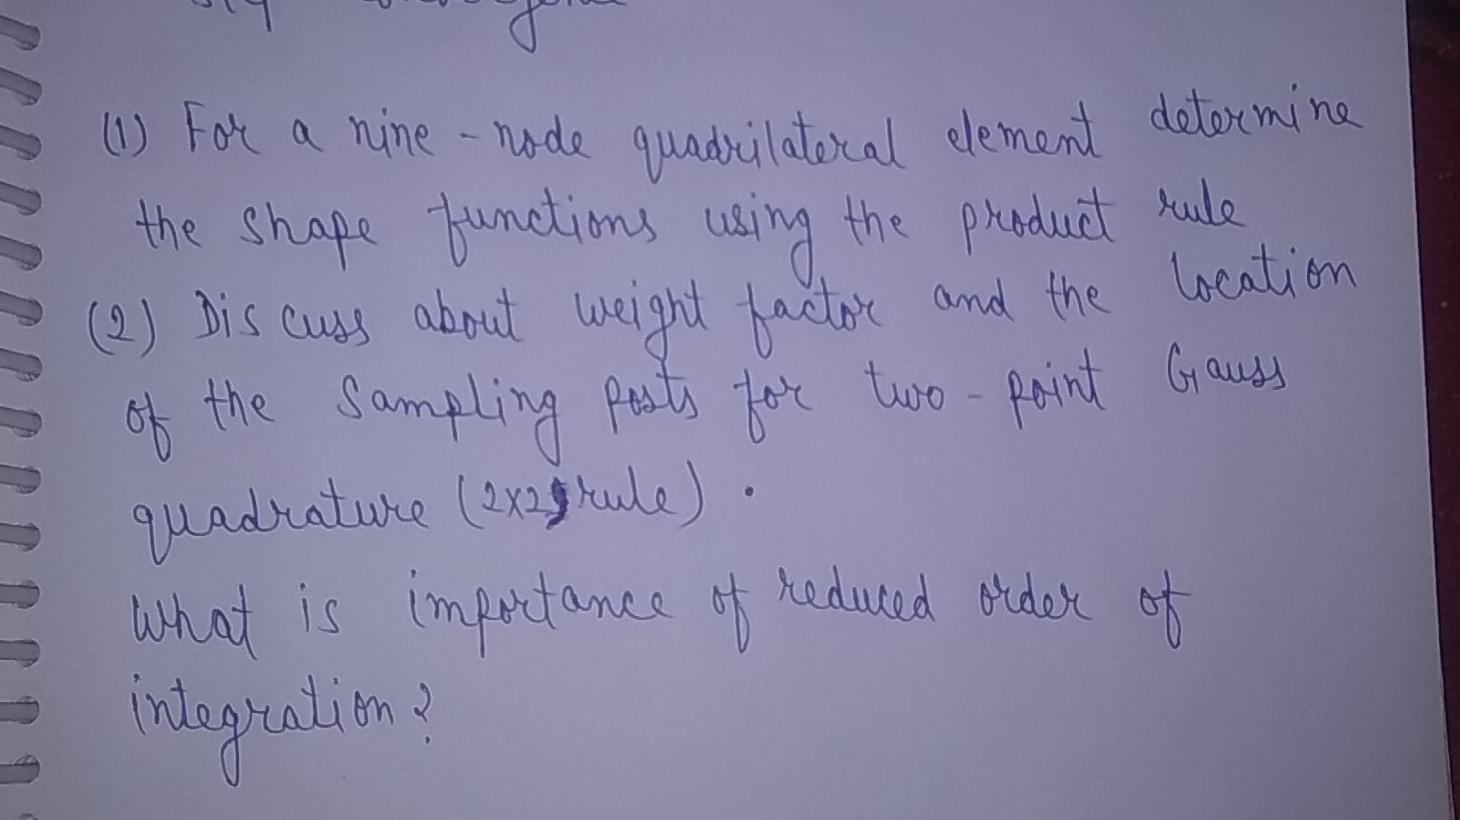 (1) For a nine-node quadrilateral element determine
the shape functions using the product rule
(2) Discuss about weight factor and the location
of the Sampling posts for two-point Gauss
quadrature (2x2 rule).
What is importance of reduced order of
integration?